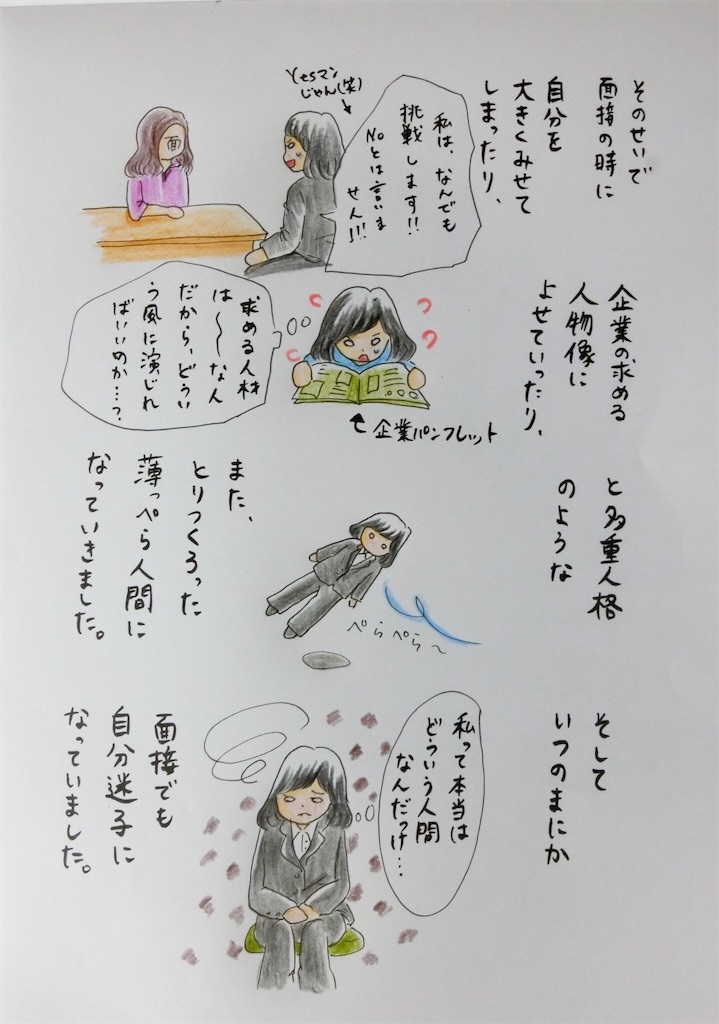 そのせいで
面接の時に
自分を
大きくみせて
しまったり、
私は、なんでも
挑戦します!!
Noとは言いま
せん!!
Yesマン
じゃん(笑)
面
企業の求める
人物像に
よせていったり、
求める人材
は〜〜なん
だから、どうい
う風に演じれ
ばいいのか…?
企業パンフレット
と多重人格
のような
また、
とりつくろった
薄っぺら人間に
なっていきました。
ぺらぺら〜
そして
いつのまにか
私って本当は
どういう人間
なんだっけ…
面接でも
自分迷子に
なっていました。